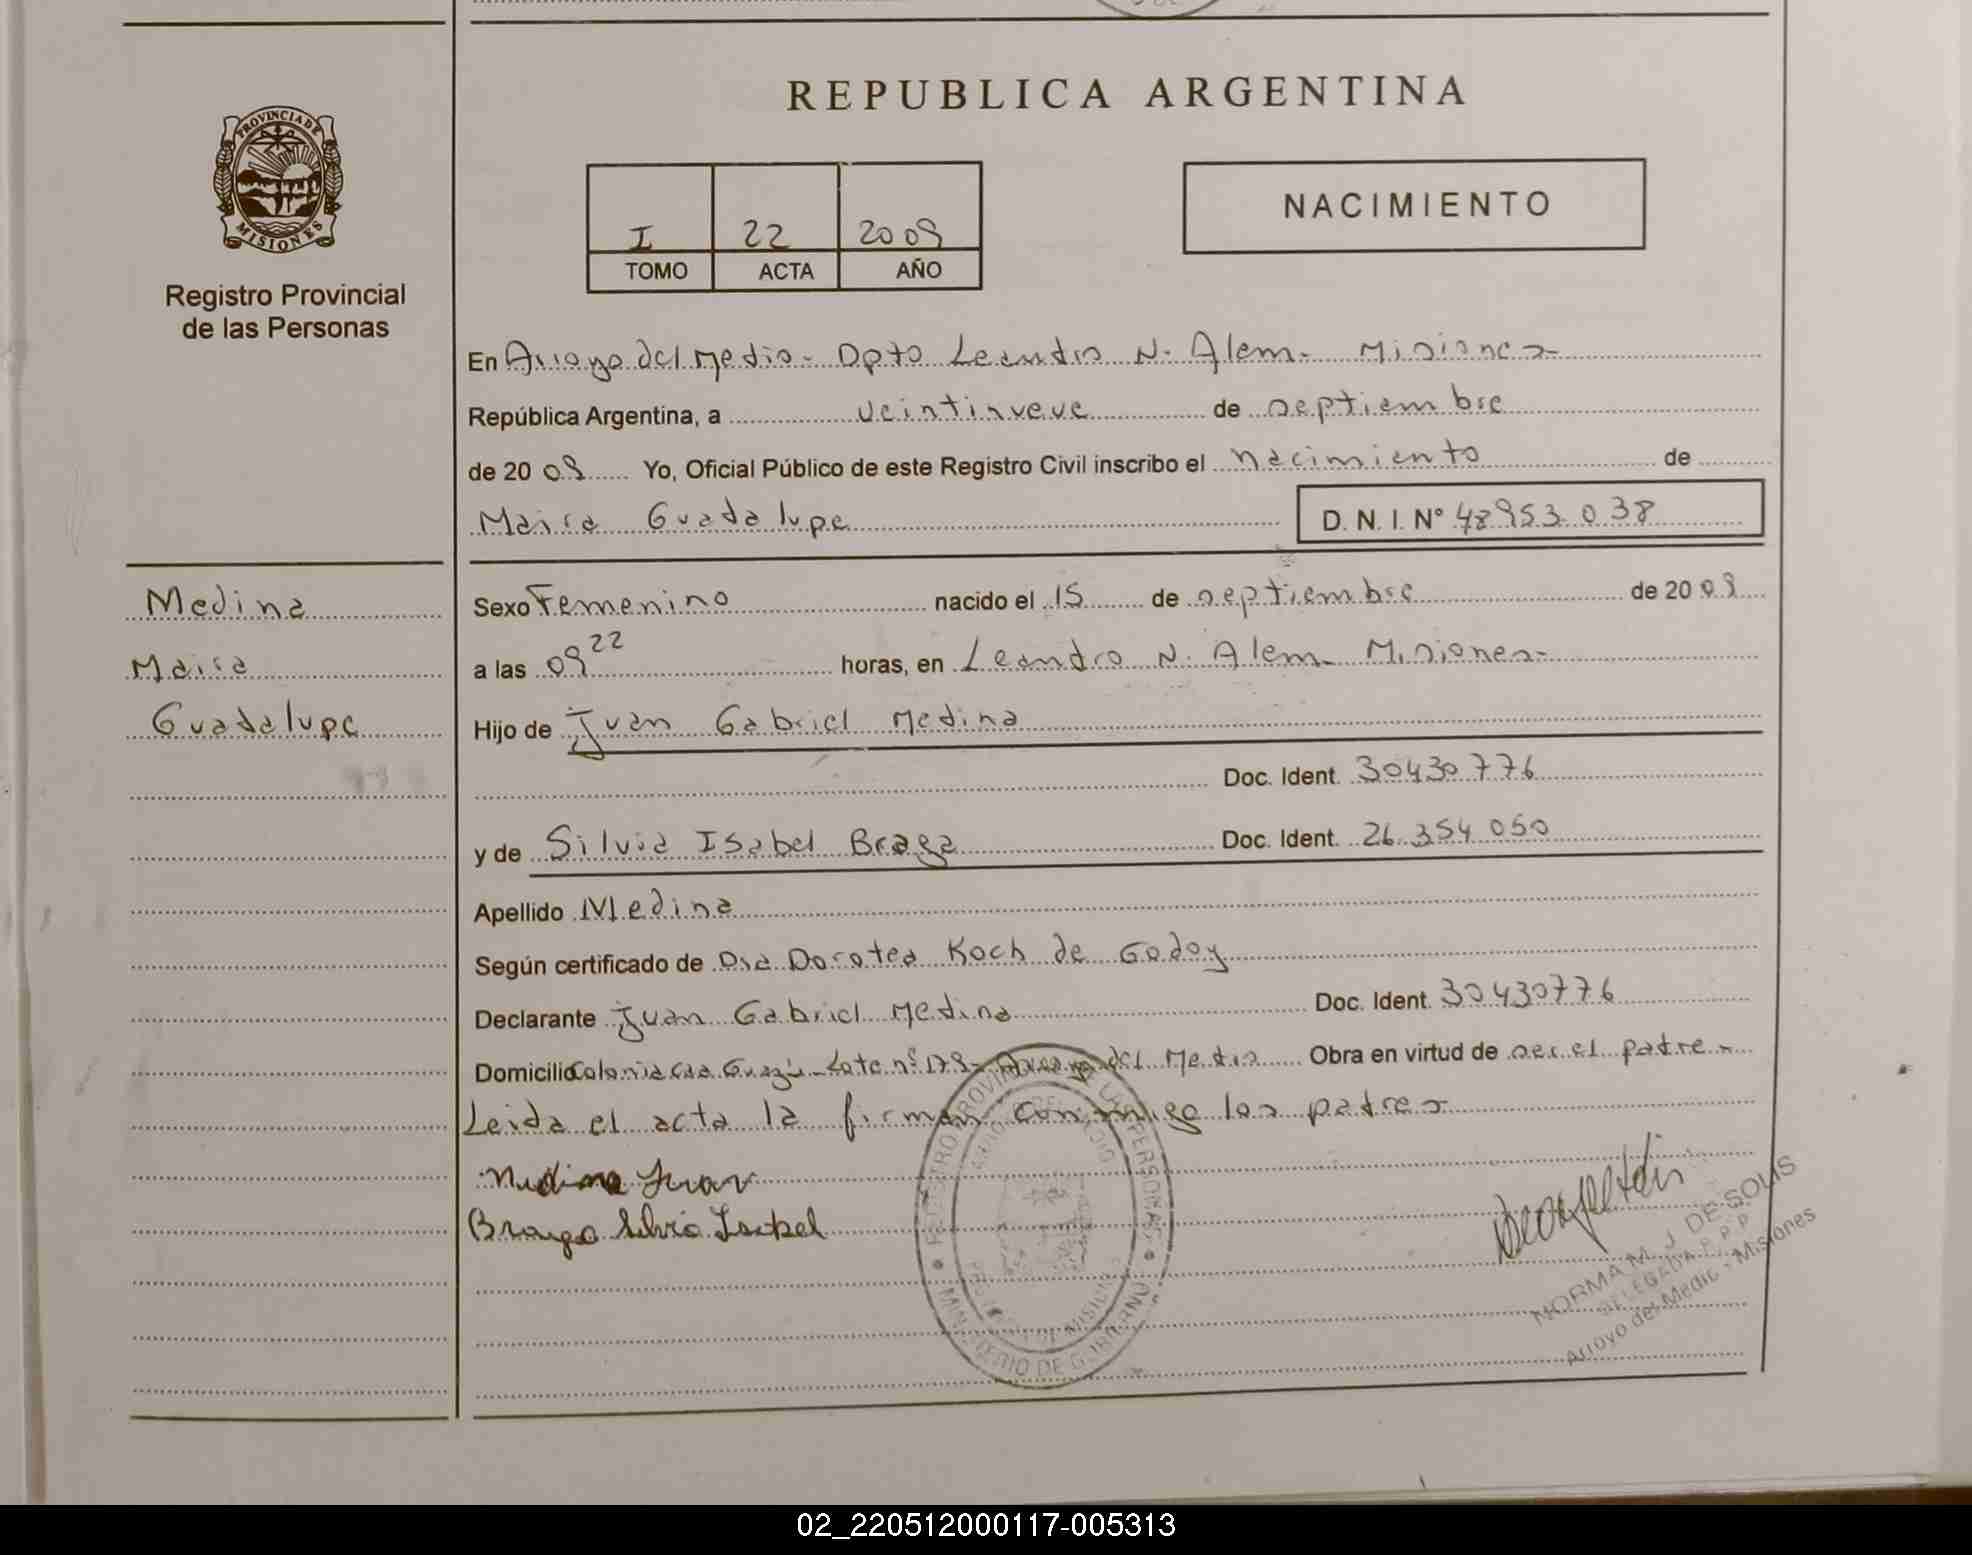 REPUBLICA ARGENTINA
PROVINCIA DE MISIONES
Registro Provincial
de las Personas
I 22 2009
TOMO ACTA AÑO
NACIMIENTO
En Arroyo del Medio - Dpto Leandro N. Alem - Misiones -
República Argentina, a veintinueve de septiembre
de 20 09 Yo, Oficial Público de este Registro Civil inscribo el nacimiento de
Maira Guadalupe D. N. I. Nº 48953038
Medina
Maira
Guadalupe
Sexo Femenino nacido el 15 de septiembre de 20 09
a las 09 22 horas, en Leandro N. Alem - Misiones -
Hijo de Juan Gabriel Medina
Doc. Ident. 30430776
y de Silvia Isabel Braga Doc. Ident. 26.354.050
Apellido Medina
Según certificado de Dra Dorotea Koch de Godoy
Declarante Juan Gabriel Medina Doc. Ident. 30430776
Domicilio Colonia Caa Guazú - Lote nº 179 - Arroyo del Medio Obra en virtud de ser el padre -
Leida el acta la firman conmigo los padres
Medina Juan
Braga Silvia Isabel
REGISTRO PROVINCIAL DE LAS PERSONAS
MINISTERIO DE GOBIERNO
NORMA M. J. DE SOLIS
DELEGADA R. P. P.
Arroyo del Medio - Misiones
02_220512000117-005313